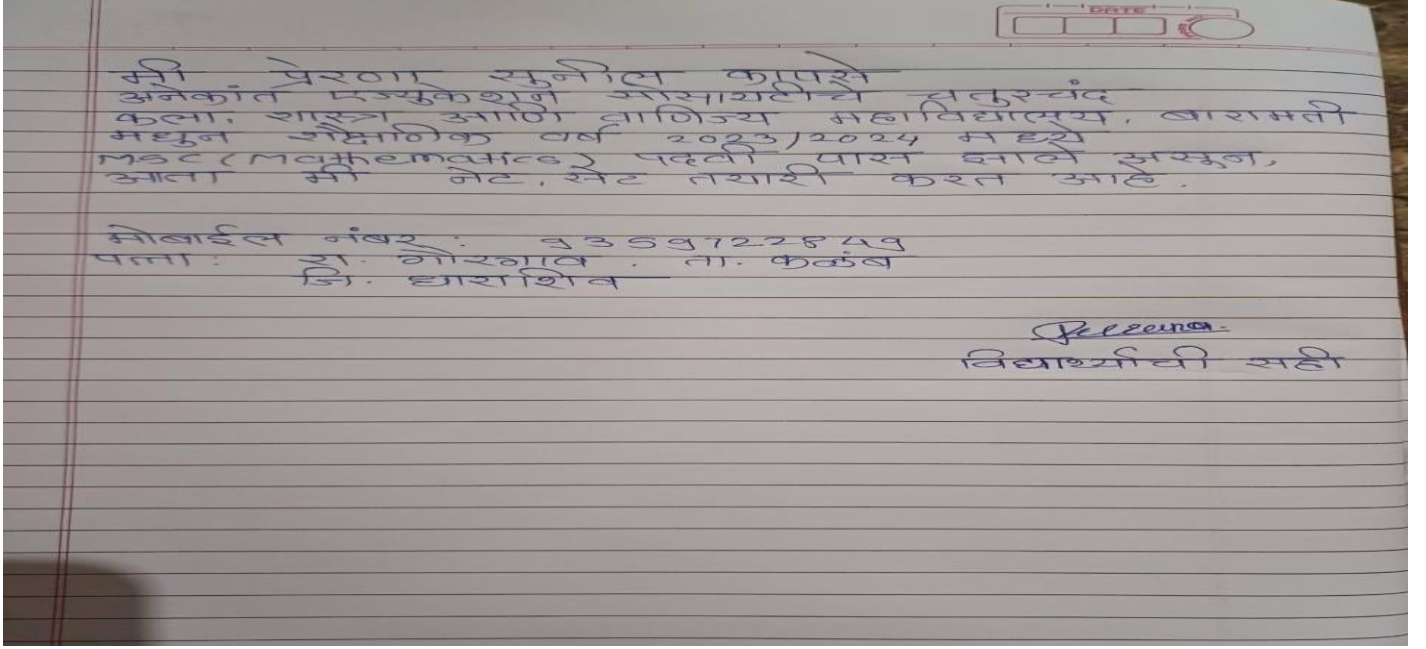 DATE
मी प्रेरणा सुनील कापसे
अनेकांत एज्युकेशन सोसायटीचे चतुरचंद
कला, शास्त्र आणि वाणिज्य महाविद्यालय, बारामती
मधुन शैक्षणिक वर्ष 2023/2024 मध्ये
MSC (Mathematics) पदवी पास झाले असून,
आता मी नेट, सेट तयारी करत आहे.
मोबाईल नंबर : 9359722849
पत्ता : रा. गौरगाव . ता. कळंब
जि. धाराशिव
Prerana
विद्यार्थ्याची सही